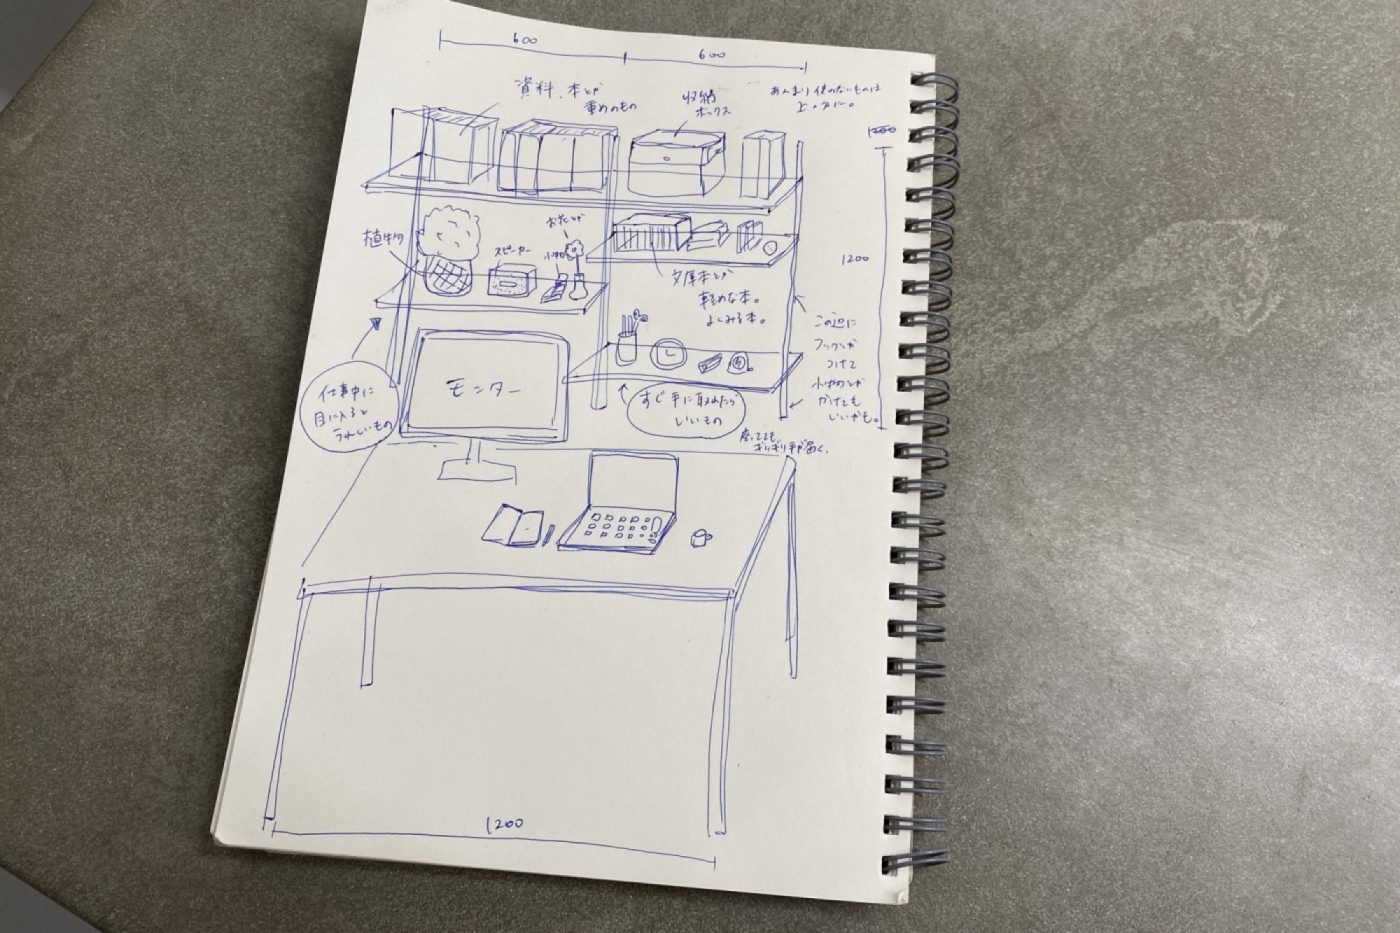 600
600
資料、本とか
重めのもの
収納
ボックス
あんまり使わないものは
上の方に。
1200
植物
スピーカー
お花とか
小物
文庫本とか
軽めな本。
よくみる本。
この辺に
フックとか
つけて
小物とか
かけても
いいかも。
仕事中に
目に入ると
うれしいもの
モニター
すぐ手に取れたら
いいもの
座ってても
ぎりぎり手が届く、
1200